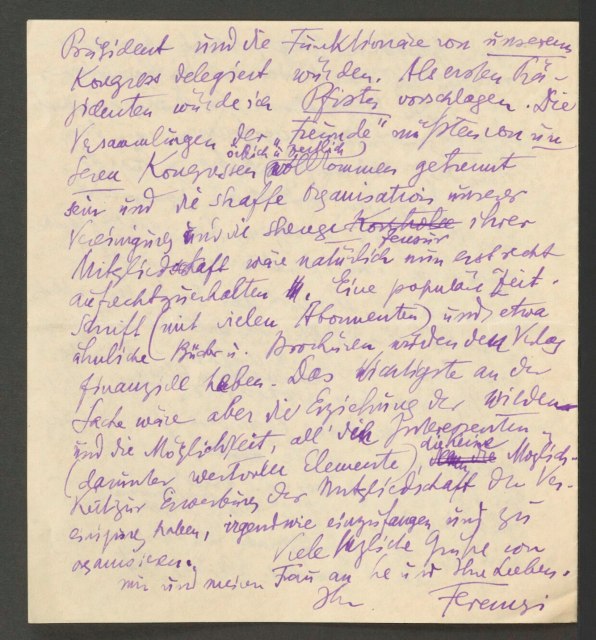 Präsident und die Funktionäre von unserem
Kongress delegiert würden. Als ersten Prä-
sidenten würde ich Pfister vorschlagen. Die
Versammlungen der „Freunde“ müssten von un
seren Kongressen (örtlich u. zeitlich) vollkommen getrennt
sein und die straffe Organisation unserer
Vereinigung und die strenge Kontrolle Zensur ihrer
Mitgliedschaft wäre natürlich nun erst recht
aufrechtzuerhalten. Eine populäre Zeit-
schrift (mit vielen Abonnenten) und etwa
ähnliche Bücher u. Brochüren würden den Verlag
finanziell heben. Das Wichtigste an der
Sache wäre aber die Erziehung der Wilden
und die Möglichkeit, all die Interessenten
(darunter wertvolle Elemente) die keine Möglich-
keit zur Erwerbung der Mitgliedschaft der Ver-
einigung haben, irgendwie einzufangen und zu
organisieren.
Viele herzliche Grüße von
mir und meiner Frau an Sie und Ihre Lieben.
Ihr Ferenczi